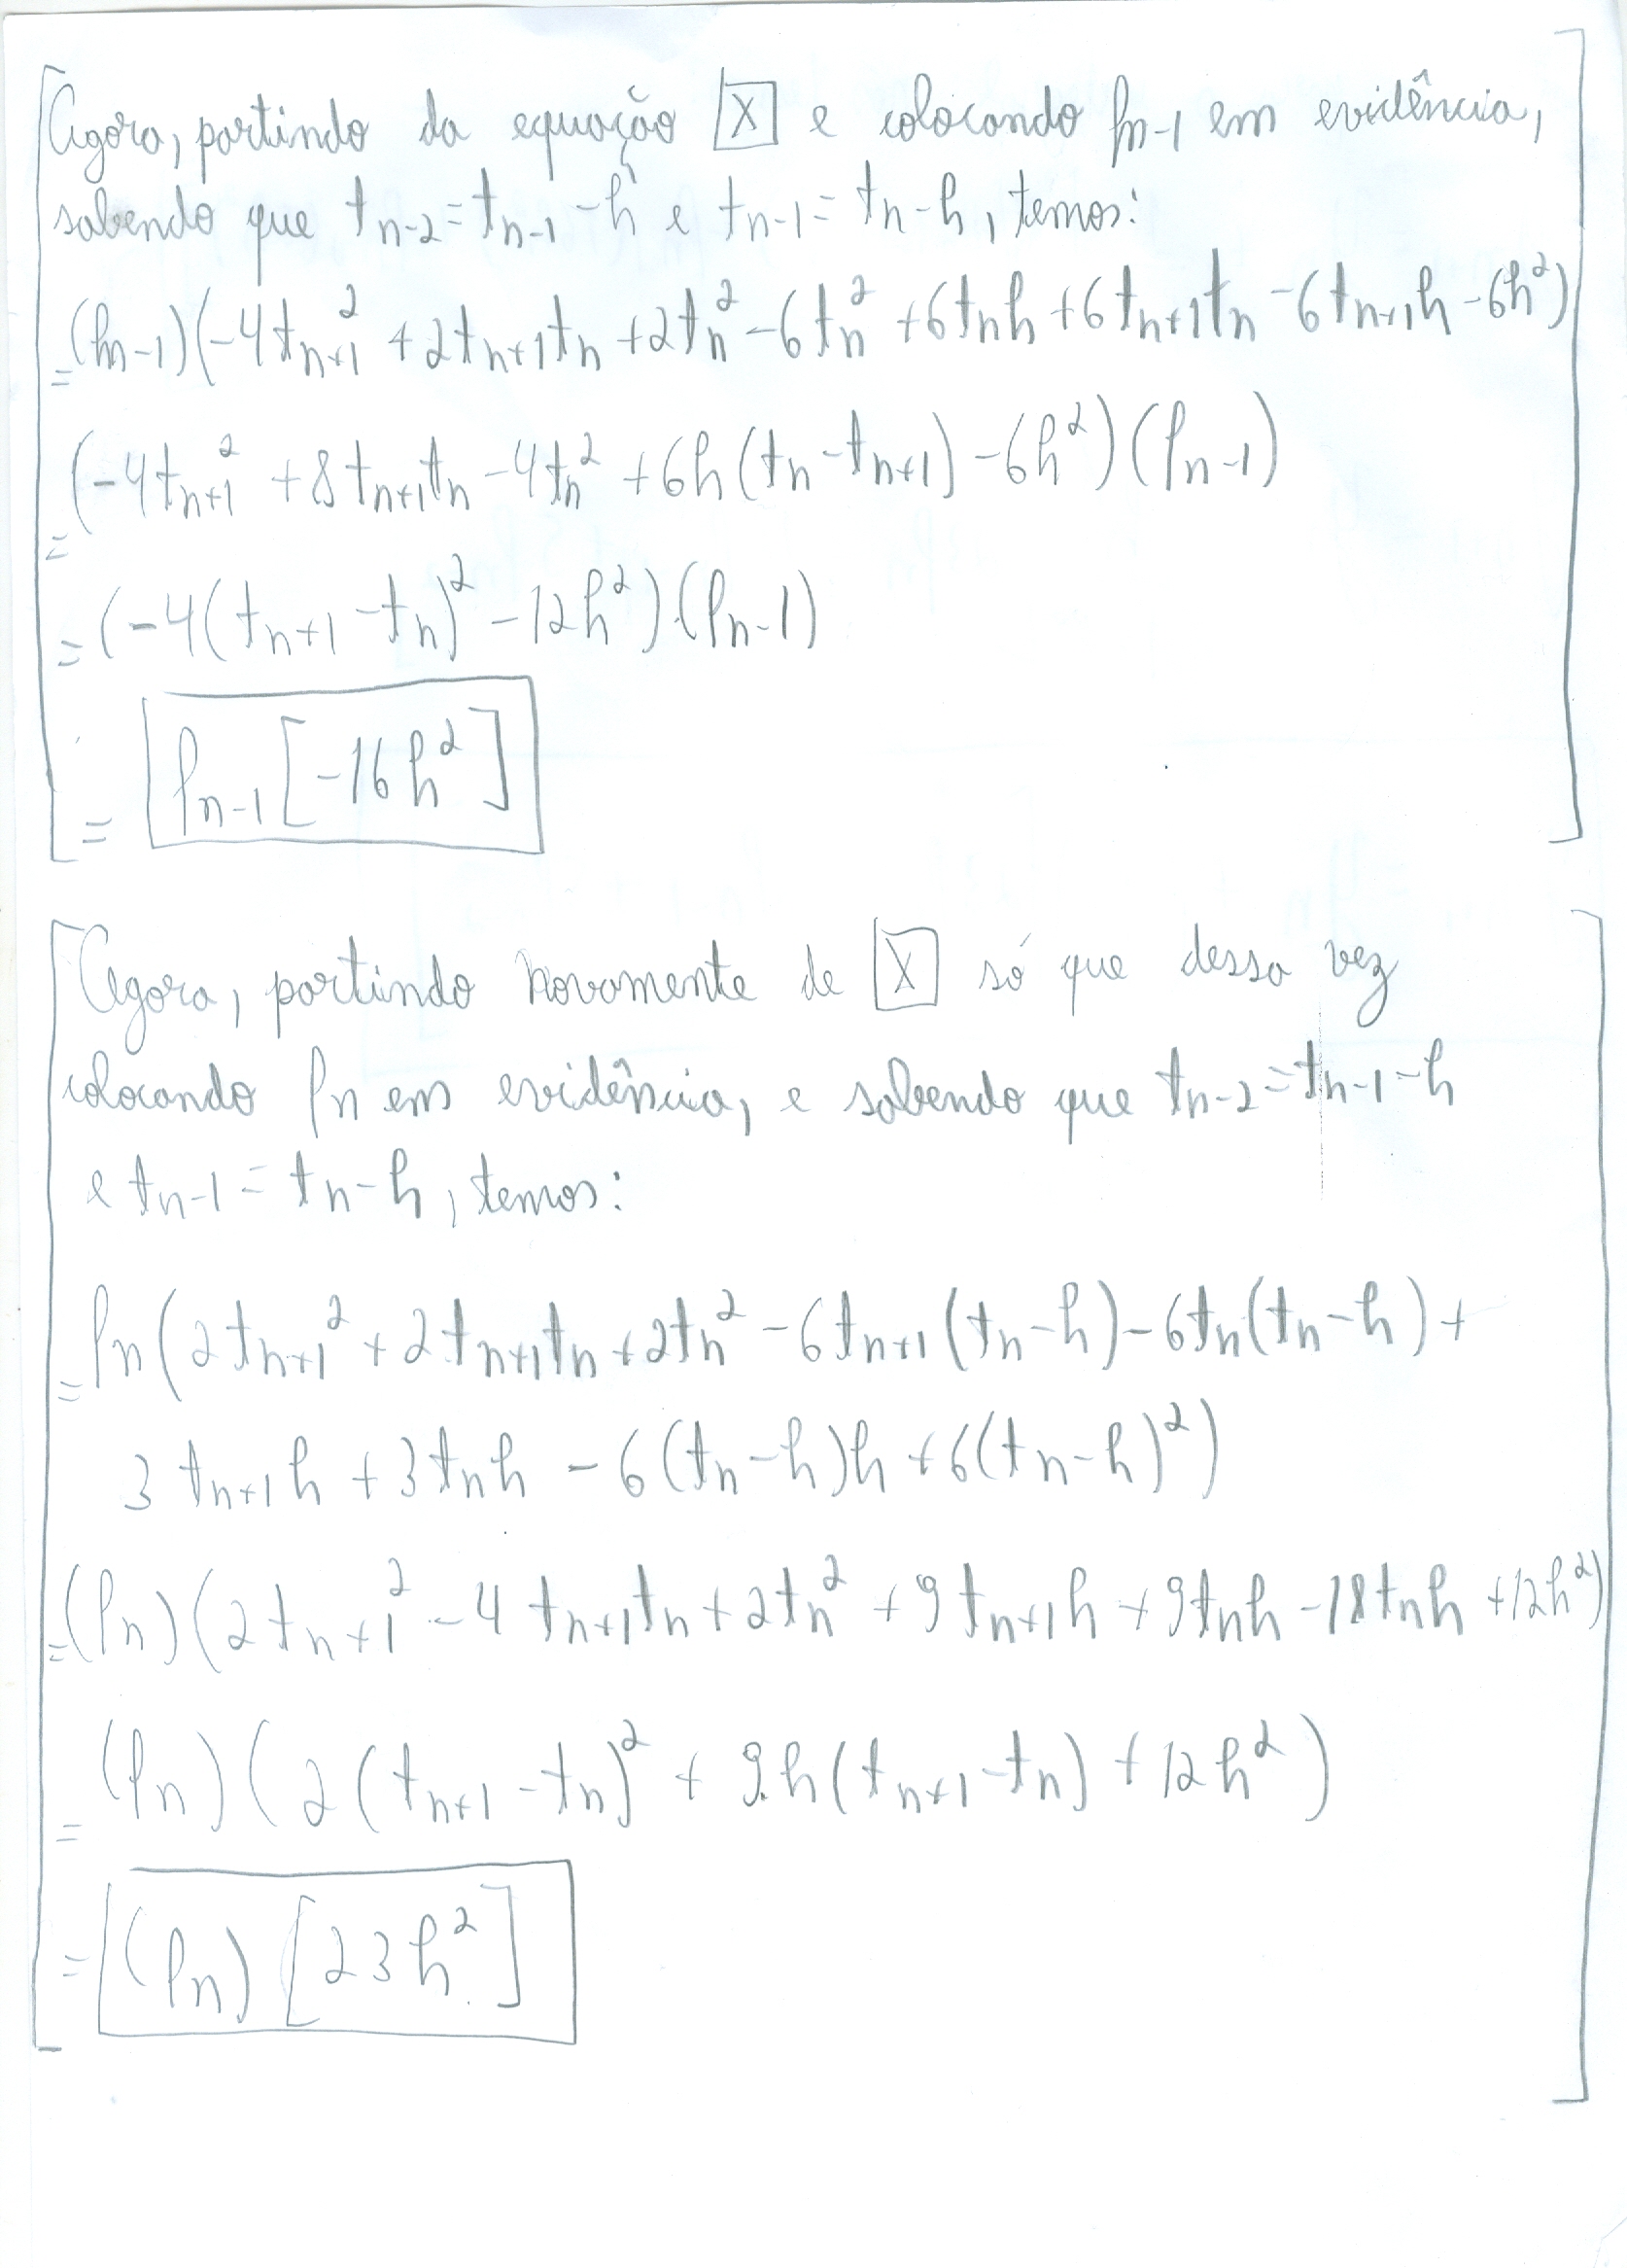 Agora, partindo da equação [X] e colocando fn-1 em evidência,
sabendo que tn-2 = tn-1 - h e tn-1 = tn - h, temos:
= (fn-1)(-4tn+1² + 2tn+1tn + 2tn² - 6tn² + 6tnh + 6tn+1tn - 6tn+1h - 6h²)
= (-4tn+1² + 8tn+1tn - 4tn² + 6h(tn - tn+1) - 6h²)(fn-1)
= (-4(tn+1 - tn)² - 12h²)(fn-1)
= fn-1[-16h²]
Agora, partindo novamente de [X] só que dessa vez
colocando fn em evidência, e sabendo que tn-2 = tn-1 - h
e tn-1 = tn - h, temos:
= fn(2tn+1² + 2tn+1tn + 2tn² - 6tn+1(tn - h) - 6tn(tn - h) +
3tn+1h + 3tnh - 6(tn - h)h + 6(tn - h)²)
= (fn)(2tn+1² - 4tn+1tn + 2tn² + 9tn+1h + 9tnh - 18tnh + 12h²)
= (fn)(2(tn+1 - tn)² + 9h(tn+1 - tn) + 12h²)
= (fn)[23h²]